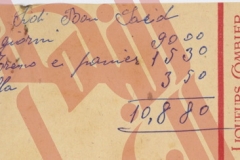 Sidi Bou Saed
giorni 90.00
Treno e panier 15 30
lla 3,50
10,880
LIQUEURS COMBIER